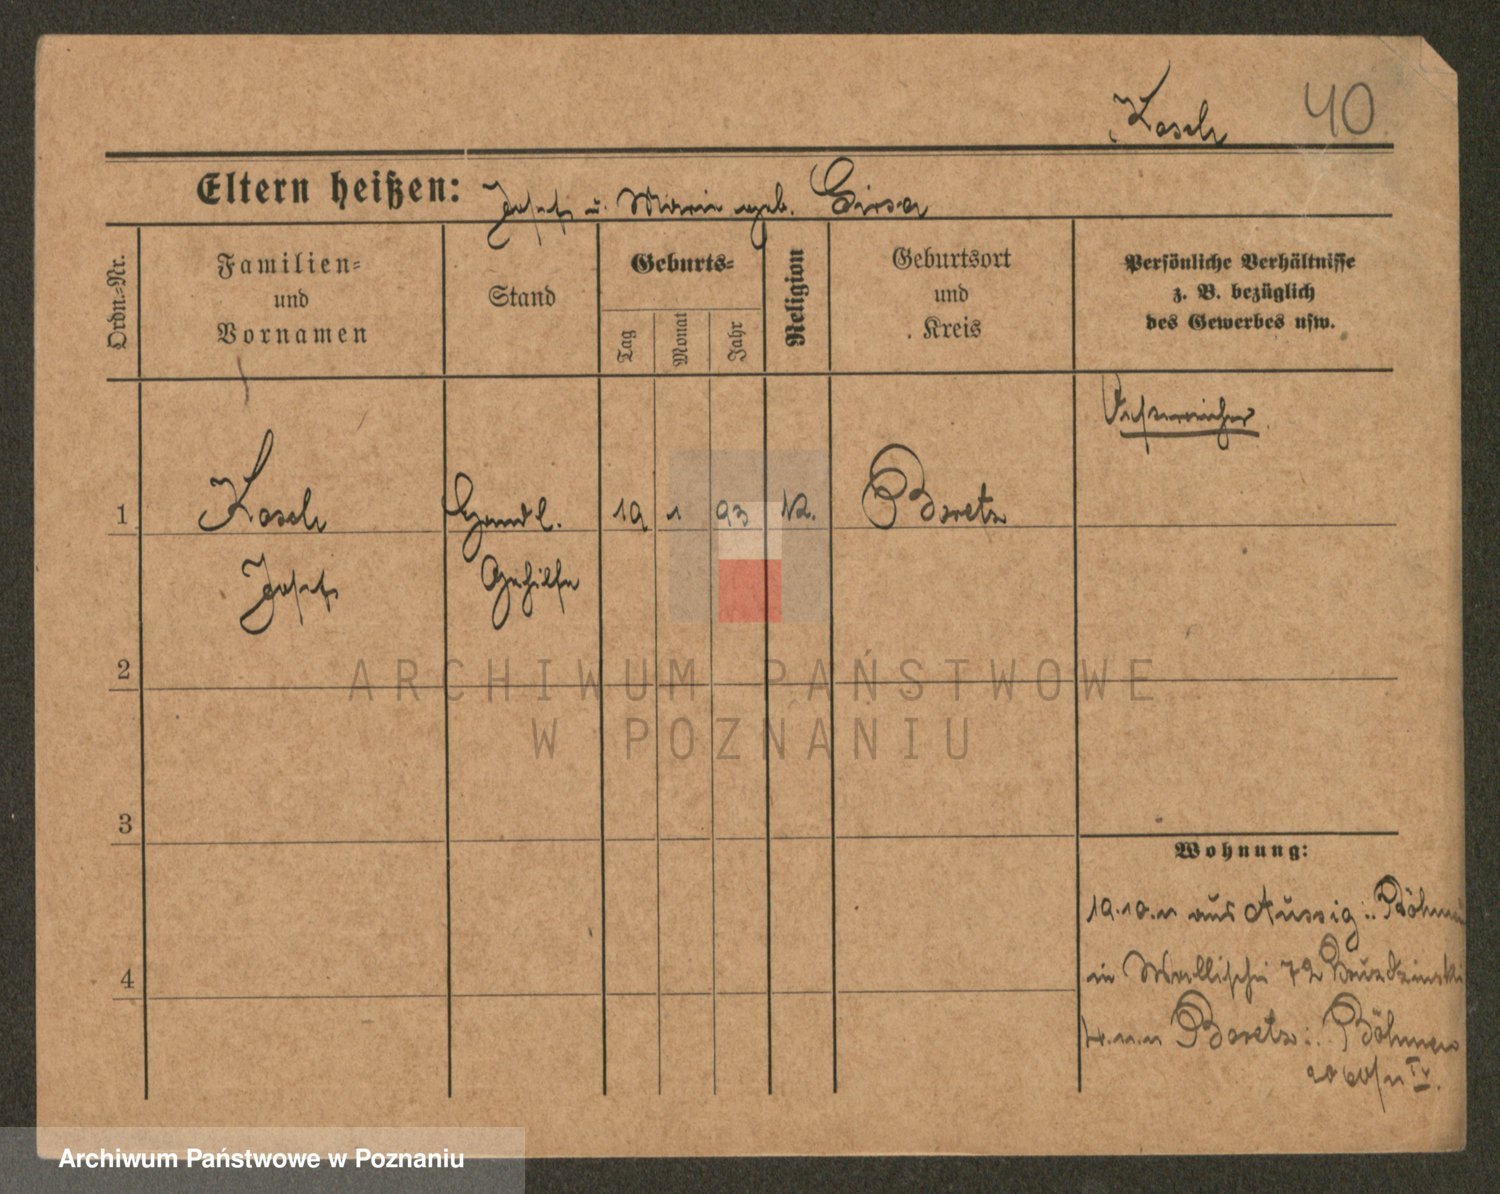 Kosch 40
Eltern heißen: Josef u. Marie geb. Girsa
Ordn.-Nr.
Familien-
und
Vornamen
Stand
Geburts-
Tag
Monat
Jahr
Religion
Geburtsort
und
Kreis
Persönliche Verhältnisse
z. B. bezüglich
des Gewerbes usw.
Oesterreicher
1 Kosch Handl. 19 1 93 K. Boretz
Josef Gehilfe
2
3
4
Wohnung:
19.10.11 aus Aussig i. Böhmen
in Wallischei 72
11.11 Boretz i. Böhmen
ARCHIWUM PAŃSTWOWE
W POZNANIU
Archiwum Państwowe w Poznaniu